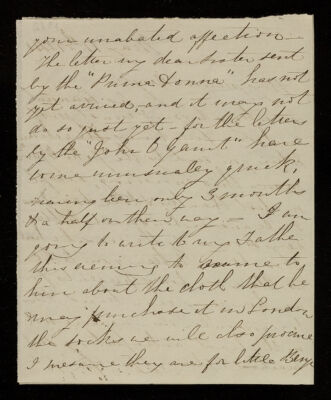 your unabated affection —
The letter my dear sister sent
by the "Prima Donna" has not
yet arrived, and it may not
do so just yet — for the letters
by the "John O Gaunt" have
come unusually quick,
having been only 3 months
& a half on their way — I am
going to write to my Fathe
this evening to name to
him about the cloth that he
may purchase it in London
the socks we will also procure
I presume they are for little Henry